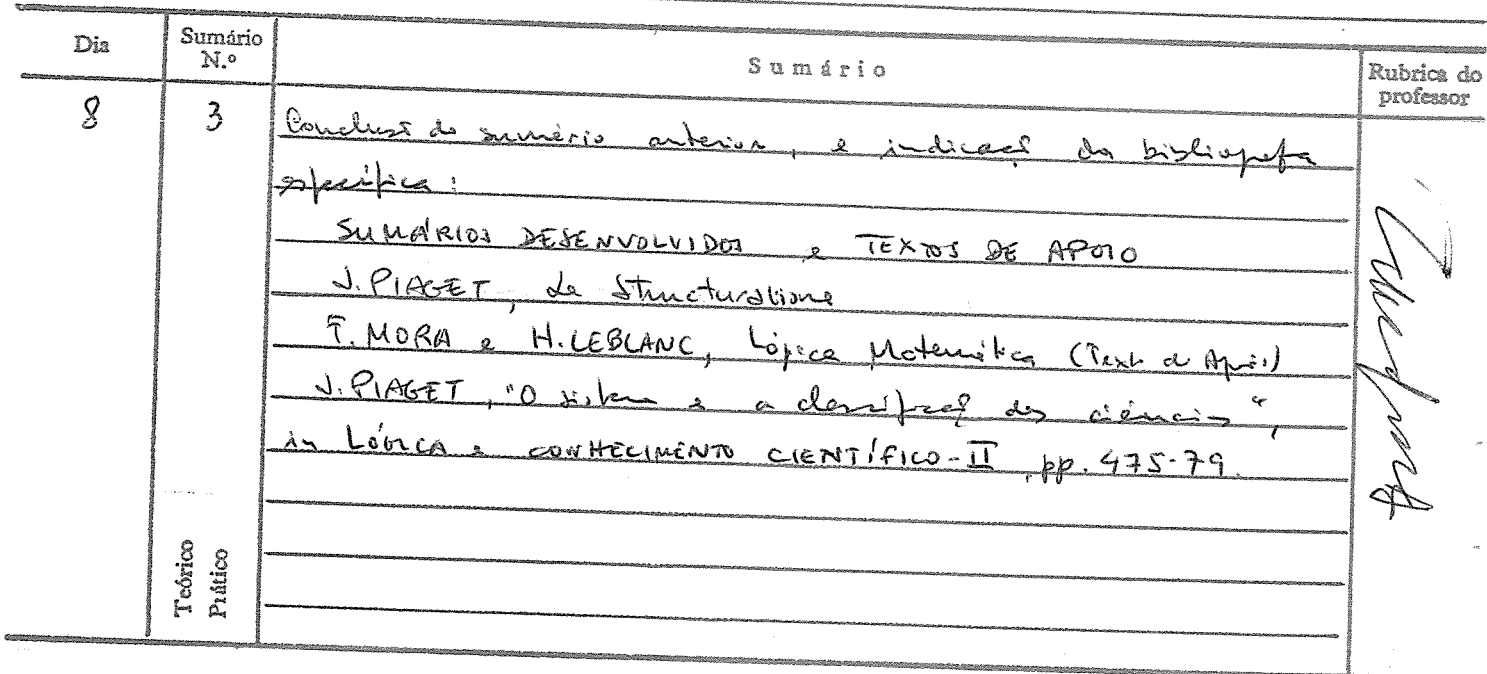 Dia
Sumário N.º
Sumário
Rubrica do professor
8
3
Conclusã do sumário anterior, e indicaçã da bibliografia
específica:
SUMÁRIOS DESENVOLVIDOS e TEXTOS DE APOIO
J. PIAGET, Le Structuralisme
F. MORA e H. LEBLANC, Lógica Matemática (Text de Apoio)
J. PIAGET, "O sistema e a classificaçã das ciências",
in LÓGICA e CONHECIMENTO CIENTÍFICO-II, pp. 475-79.
Teórico
Prático